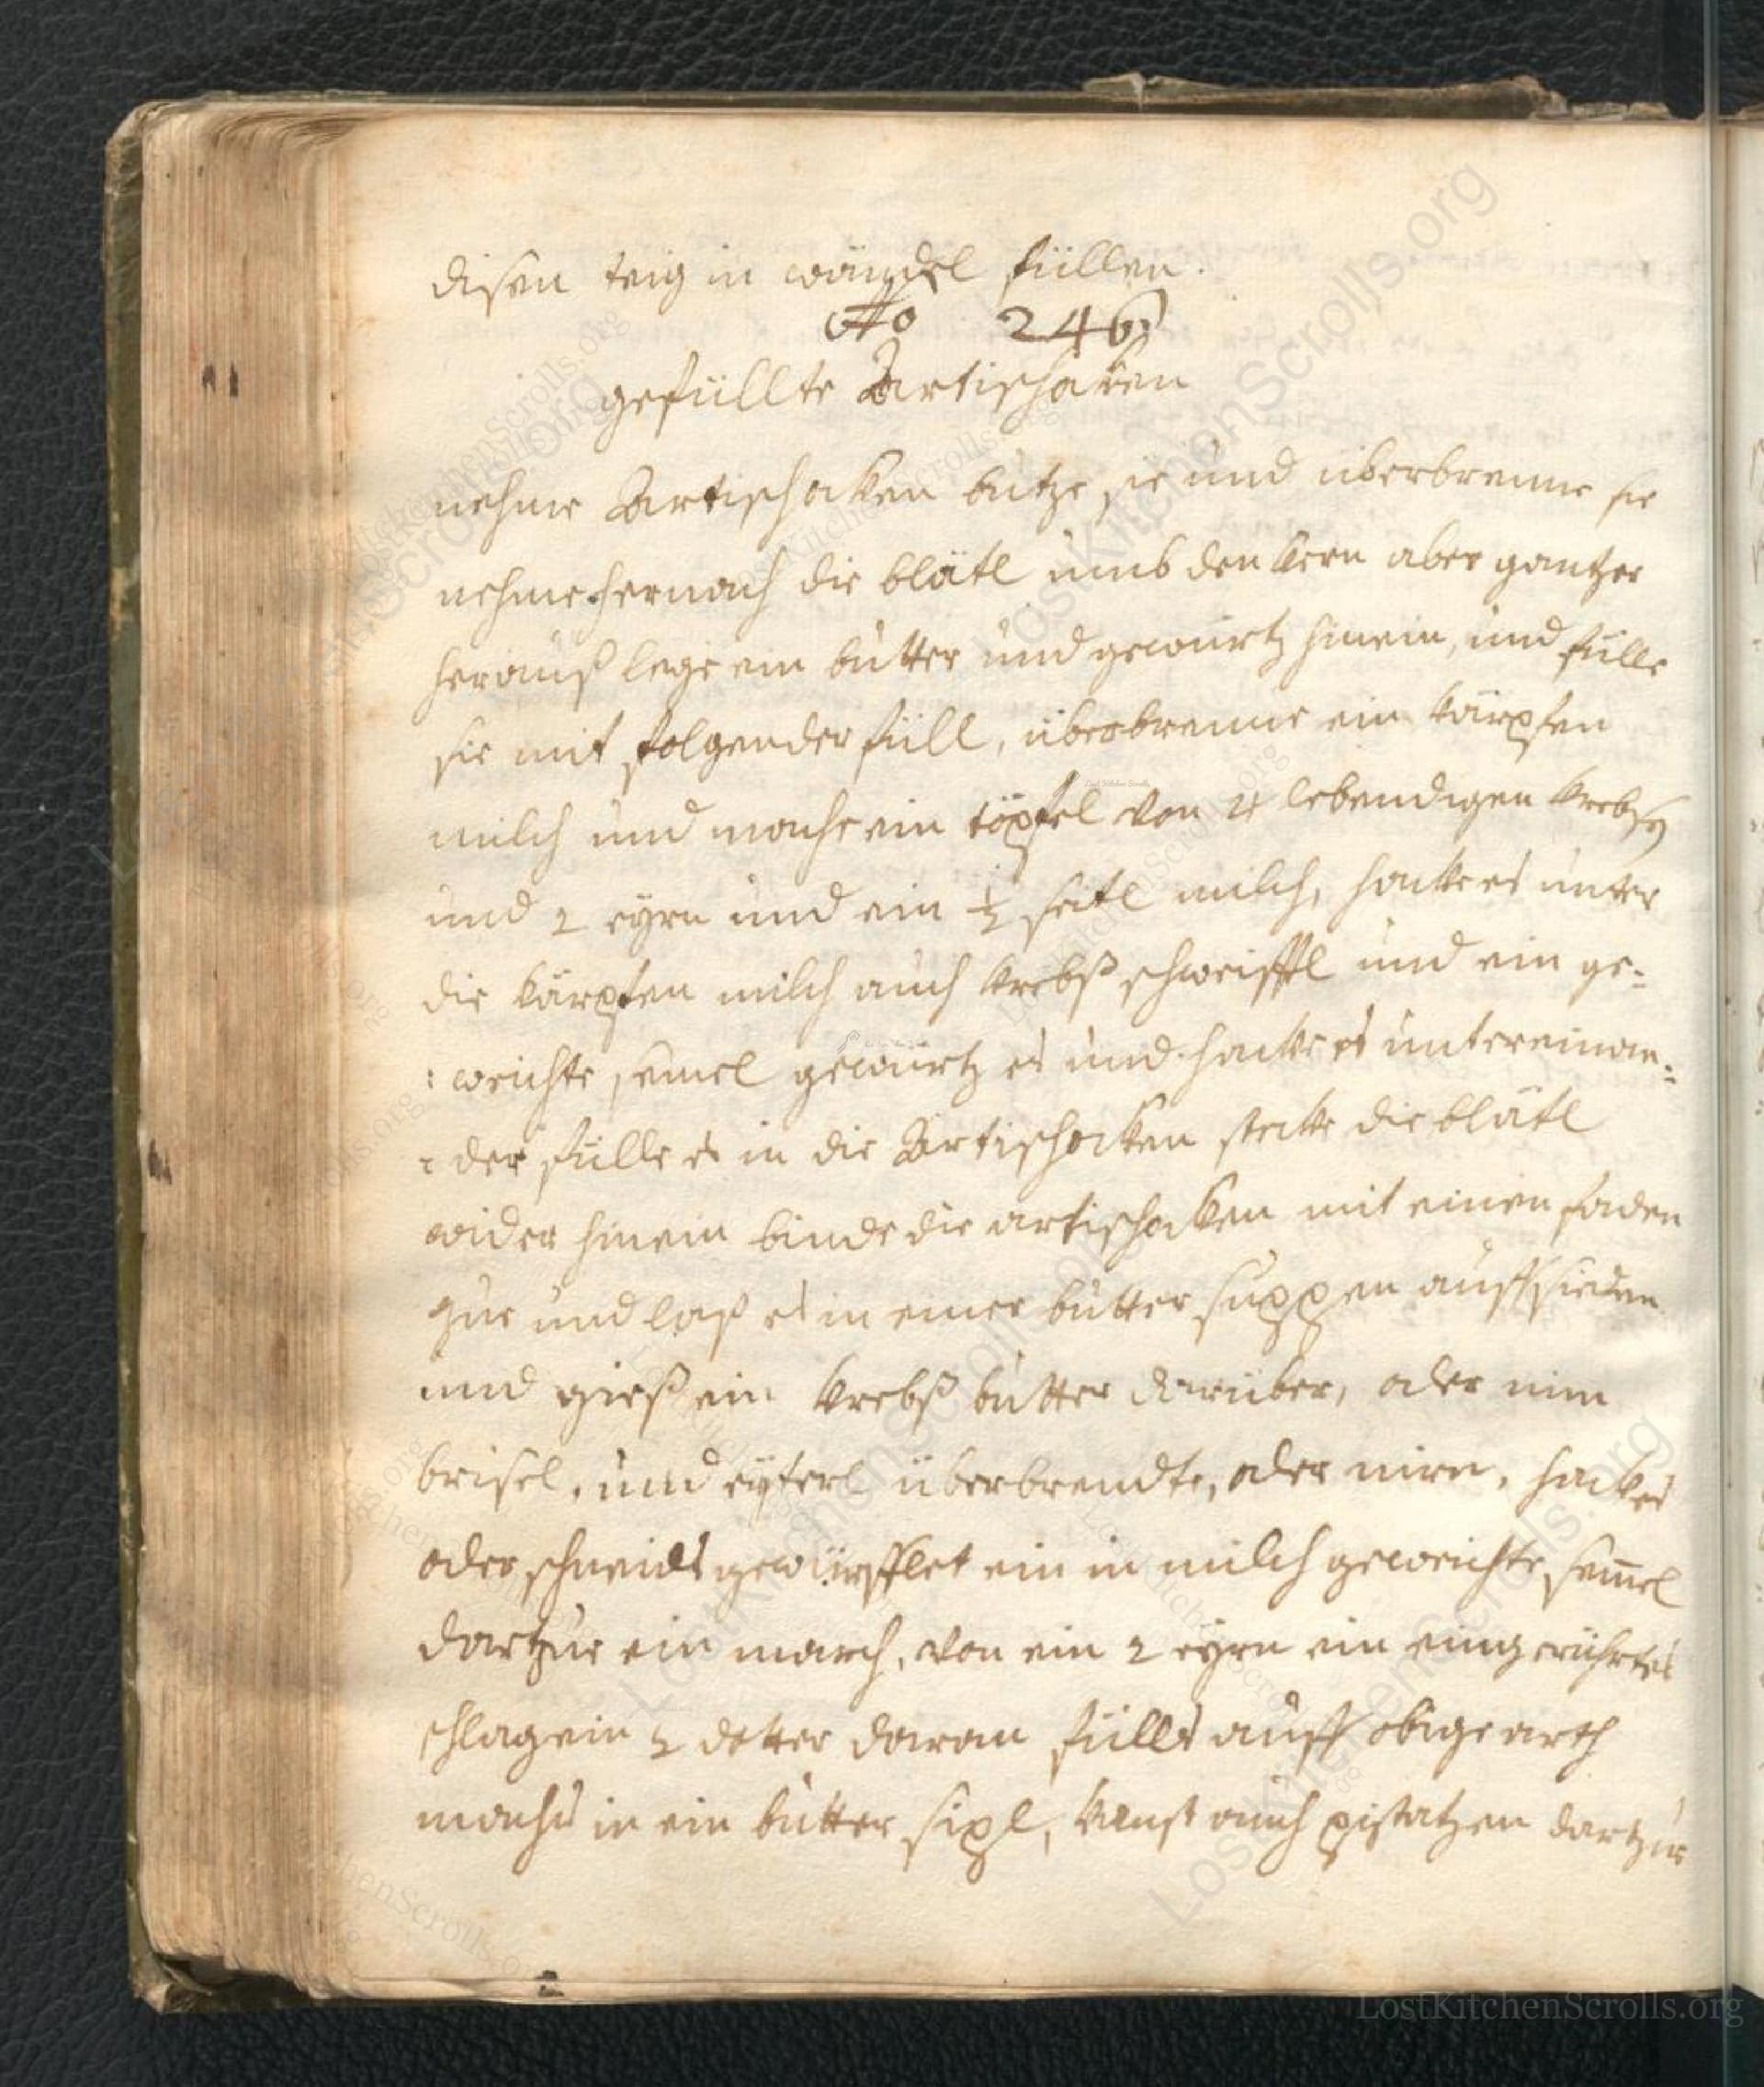 disen teig in wändel füllen.
No 246
gefüllte Artischaken
nehme Artischoken butze sie und überbrenne sie
nehme hernach die blätl umb den kern aber gantzer
herauß lege ein butter und gewürtz hinein, und fülle
sie mit folgender füll, überbrenne ein kärpfen
milch und mache ein töpfel von 4 lebendigen krebsen
und 2 eyrn und ein ½ seitl milch, hacke es unter
die kärpfen milch auch krebß schweiffl und ein ge=
:weichte semel gewürtz es und hacke es untereinan=
=der fülle es in die Artischocken stecke die blätl
wider hinein binde die artischoken mit einen faden
zue und laß es in einer butter suppen auffsieden
und gieß ein krebß butter darüber, oder nim
brisel, und eyterl überbrendte, oder nirn, hackes
oder schneids gewürfflet ein in milch geweichte semel
dartzue ein march, von ein 2 eyrn ein eingerührtes
schlag ein 2 dotter daran fülls auff obige arth
machs in ein butter sipl, kanst auch pistatzen dartzue
LostKitchenScrolls.org